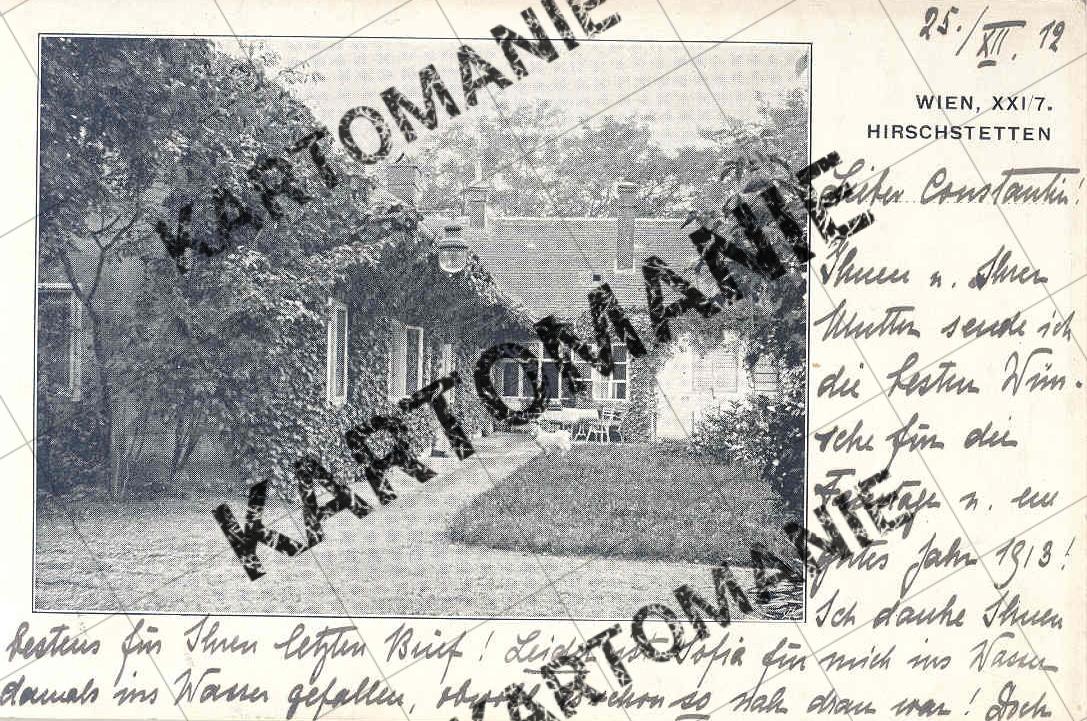 25./XII. 12
WIEN, XXI/7.
HIRSCHSTETTEN
Lieber Constantin!
Ihnen u. Ihrer
Mutter sende ich
die besten Wün-
sche für die
Feiertage u. ein
gutes Jahr 1913!
Ich danke Ihnen
bestens für Ihren letzten Brief! Leider ist Sofia für mich ins Wasser
damals ins Wasser gefallen, obwohl schon so nah dran war! Doch
KARTOMANIE
KARTOMANIE
KARTOMANIE